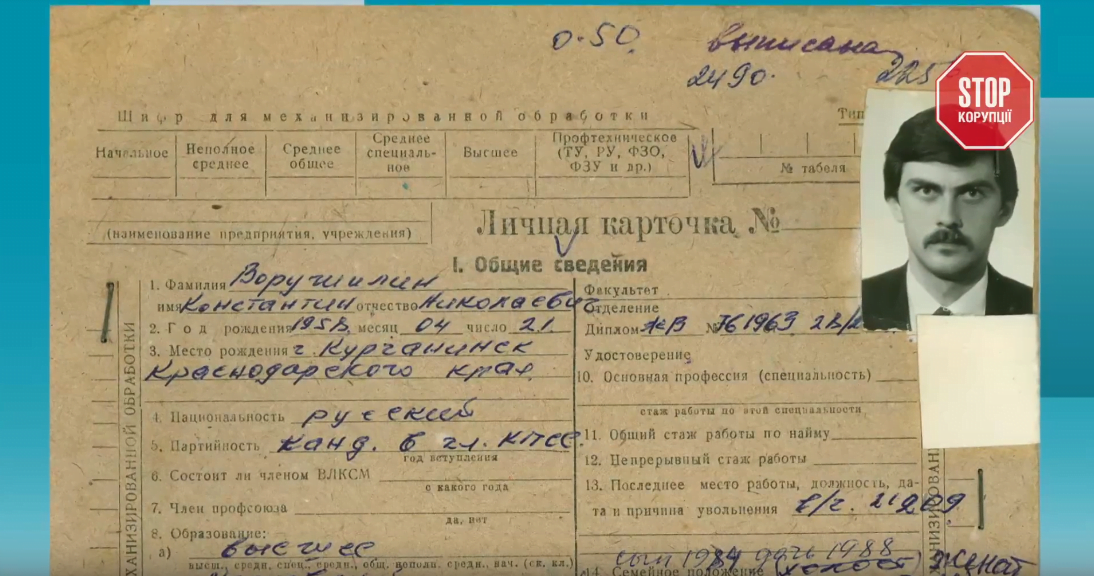 0-50. выписана
2490. 225
STOP
КОРУПЦІЇ
Шифр для механизированной обработки
Тип
Начальное
Неполное среднее
Среднее общее
Среднее специаль-
ное
Высшее
Профтехническое
(ТУ, РУ, ФЗО,
ФЗУ и др.)
№ табеля
(наименование предприятия, учреждения)
Личная карточка №
I. Общие сведения
1. Фамилия Ворушилин
имя Константин отчество Николаевич
2. Год рождения 1958 месяц 04 число 21
3. Место рождения г. Курганинск
Краснодарского края
4. Национальность русский
5. Партийность канд. в чл. КПСС
год вступления
6. Состоит ли членом ВЛКСМ
с какого года
7. Член профсоюза
да, нет
8. Образование:
а) высшее
высш., средн. спец., средн., общ. неполн. средн., нач. (ск. кл.)
Факультет
Отделение
Диплом ЖВ № 761963
Удостоверение
10. Основная профессия (специальность)
стаж работы по этой специальности
11. Общий стаж работы по найму
12. Непрерывный стаж работы
13. Последнее место работы, должность, да-
та и причина увольнения в/ч. 21209
сын 1984 дочь 1988
14. Семейное положение (холост) женат
МЕХАНИЗИРОВАННОЙ ОБРАБОТКИ